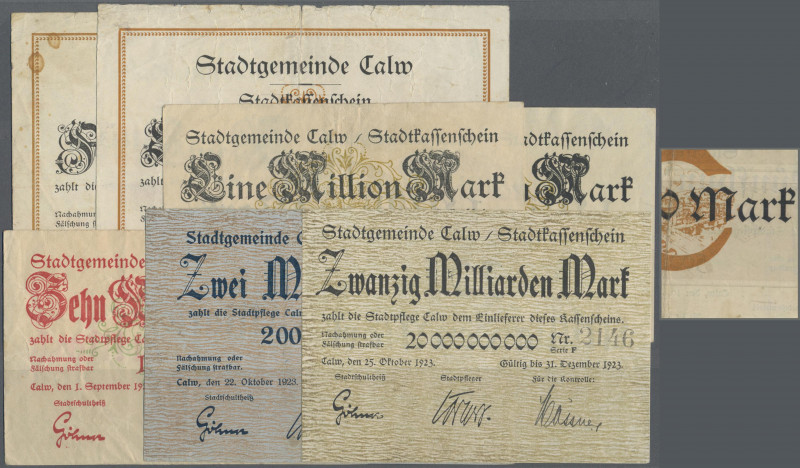 Stadtgemeinde Calw
Stadtkassenschein
zahlt die
zahlt die
Nachahmung oder
Fälschung strafbar
Nachahmung oder
Fälschung strafbar
Stadtgemeinde Calw / Stadtkassenschein
Eine Million Mark
Stadtkassenschein
Mark
o Mark
Stadtgemeinde
Zehn
zahlt die Stadtpflege
Nachahmung oder
Fälschung strafbar
1
Calw, den 1. September 19
Stadtschultheiß
Göhner
Stadtgemeinde C
Zwei M
zahlt die Stadtpflege Cal
200
Nachahmung oder
Fälschung strafbar.
Calw, den 22. Oktober 1923.
Stadtschultheiß
Göhner
Stadtgemeinde Calw / Stadtkassenschein
Zwanzig Milliarden Mark
zahlt die Stadtpflege Calw dem Einlieferer dieses Kassenscheins.
Nachahmung oder
Fälschung strafbar
20000000000 Nr. 2146
Serie F
Calw, den 25. Oktober 1923. Gültig bis 31. Dezember 1923.
Stadtschultheiß Stadtpfleger Für die Kontrolle:
Göhner